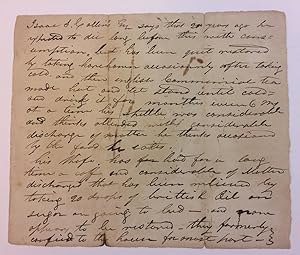 Isaac S. Collins Esq. says that 20 years ago he
expected to die long before this with cons-
umption, but has been quit restored
by taking horehound occasionally after taking
cold, and then english Commonwine tea
made hot and let stand until cold
and drank it for months every
at a time he spittle was considerable
and thinks attended with considerable
discharge of matter he thinks occasioned
by the food he eates.
his Wife, has for had for a long
time a coff and considerable of Matter
discharge that has been relieved by
taking 20 drops of brittesh Oil and
sugar on going to bed — and now
appears to be restored — they formerly
confined to the house for most part —